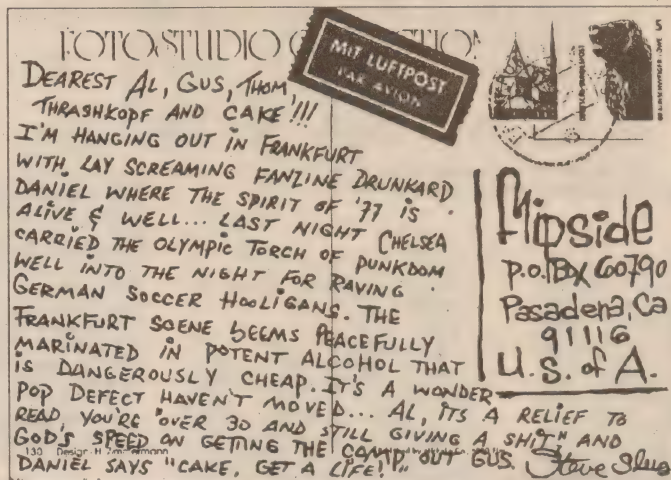 FOTOSTUDIO
MIT LUFTPOST
PAR AVION
DEAREST AL, GUS, THOM,
THRASHKOPF AND CAKE!!!
I'M HANGING OUT IN FRANKFURT
WITH LAY SCREAMING FANZINE DRUNKARD
DANIEL WHERE THE SPIRIT OF '77 IS
ALIVE & WELL... LAST NIGHT CHELSEA
CARRIED THE OLYMPIC TORCH OF PUNKDOM
WELL INTO THE NIGHT FOR RAVING
GERMAN SOCCER HOOLIGANS. THE
FRANKFURT SCENE SEEMS PEACEFULLY
MARINATED IN POTENT ALCOHOL THAT
IS DANGEROUSLY CHEAP. IT'S A WONDER
POP DEFECT HAVEN'T MOVED... AL, ITS A RELIEF TO
READ, YOU'RE "OVER 30 AND STILL GIVING A SHIT" AND
GOD'S SPEED ON GETTING THE COMP OUT GUS.
DANIEL SAYS "CAKE, GET A LIFE!"
Steve Slug
130 Design
Flipside
P.O. Box 60790
Pasadena, Ca
91116
U.S. of A.